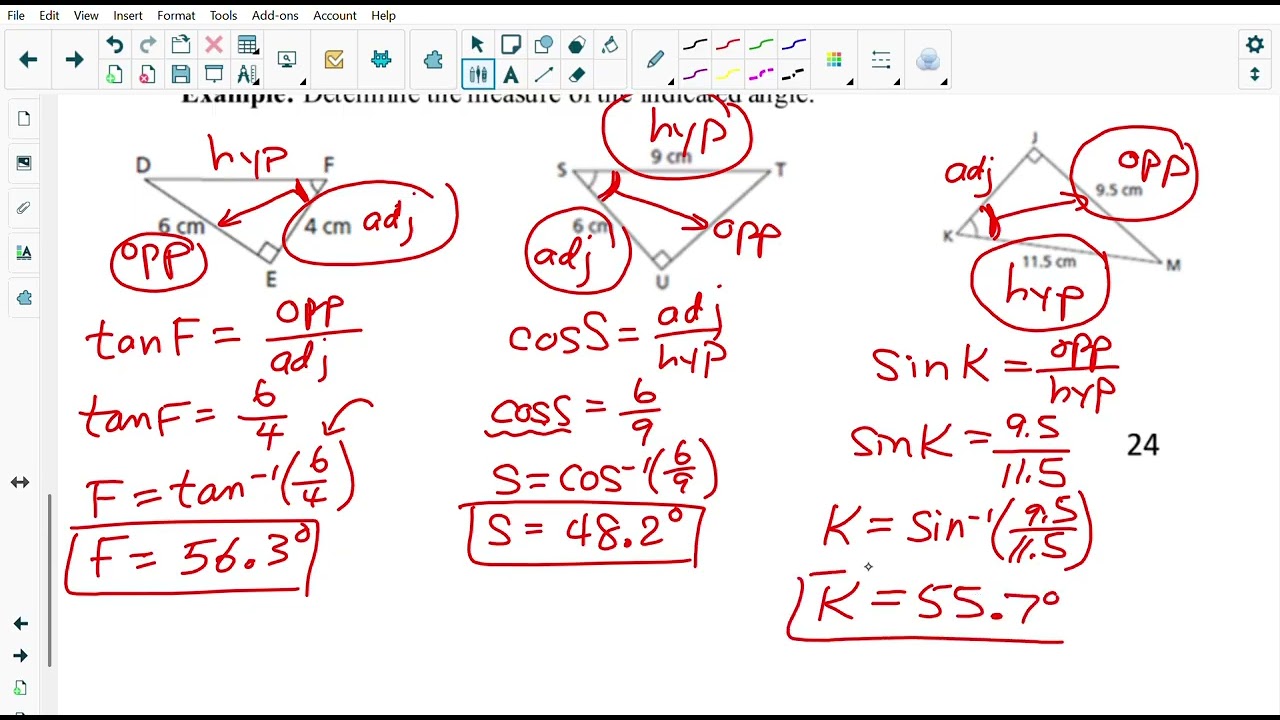 File Edit View Insert Format Tools Add-ons Account Help
Example: Determine the measure of the indicated angle.
D hyp F
6 cm 4 cm adj
opp
E
tanF = opp/adj
tanF = 6/4
F = tan⁻¹(6/4)
F = 56.3°
hyp
S 9 cm T
6 cm opp
adj
U
cosS = adj/hyp
cosS = 6/9
S = cos⁻¹(6/9)
S = 48.2°
J
adj opp
9.5 cm
K
11.5 cm M
hyp
sinK = opp/hyp
sinK = 9.5/11.5
K = sin⁻¹(9.5/11.5)
K = 55.7°
24